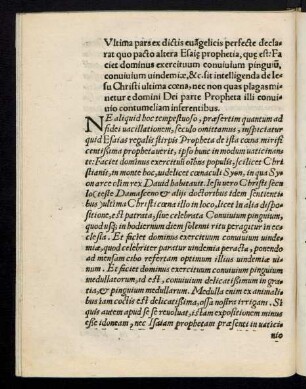 Vltima pars ex dictis euāgelicis perfecte decla
rat quo pacto altera Esaię prophetia, quę est: Fa
ciet dominus exercituum conuiuium pinguiū,
conuiuium uindemiæ, &c. sit intelligenda de Ie
su Christi ultima cœna, nec non quas plagas mi
netur e domini Dei parte Propheta illi conui
uio contumeliam inferentibus.
NE aliquid hoc tempestuoso, præsertim quantum ad
fidei uacillationem, seculo omittamus, inspectatur
quid Esaias regalis stirpis Propheta de ista cœna mirifi
centissima prophetauerit, ipso hunc in modum uaticinan
te: Faciet dominus exercituū oībus populis, scilicet Chri
stianis, in monte hoc, uidelicet cœnaculi Syon, in qua Sy
on arce olim rex Dauid habitauit. Iesu uero Christi secu
lo, teste Damasceno & alijs doctoribus idem sentienti
bus ultima Christi cœna illo in loco, licet in alia dispo
sitione, est patrata, siue celebrata Conuiuium pinguium,
quod usq; in hodiernum diem solenni ritu peragitur in ec
clesia. Et faciet dominus exercituum conuiuium uinde
miæ, quod celebriter paratur uindemia peracta, ponendo
ad mensam cibo refertam optimum illius uindemiæ ui
num. Et faciet dominus exercituum conuiuium pinguium
medullatorum, ad est, conuiuium delicatissimum in gra
tia, & pinguium medullarum. Medulla enim ex animali
bus tam coctis est delicatissima, ossa nostra irrigans. Si
quis autem apud se reuoluat, istam expositionem minus
esse idoneam, nec Isaiam prophetam præsenti in uaticio
nio